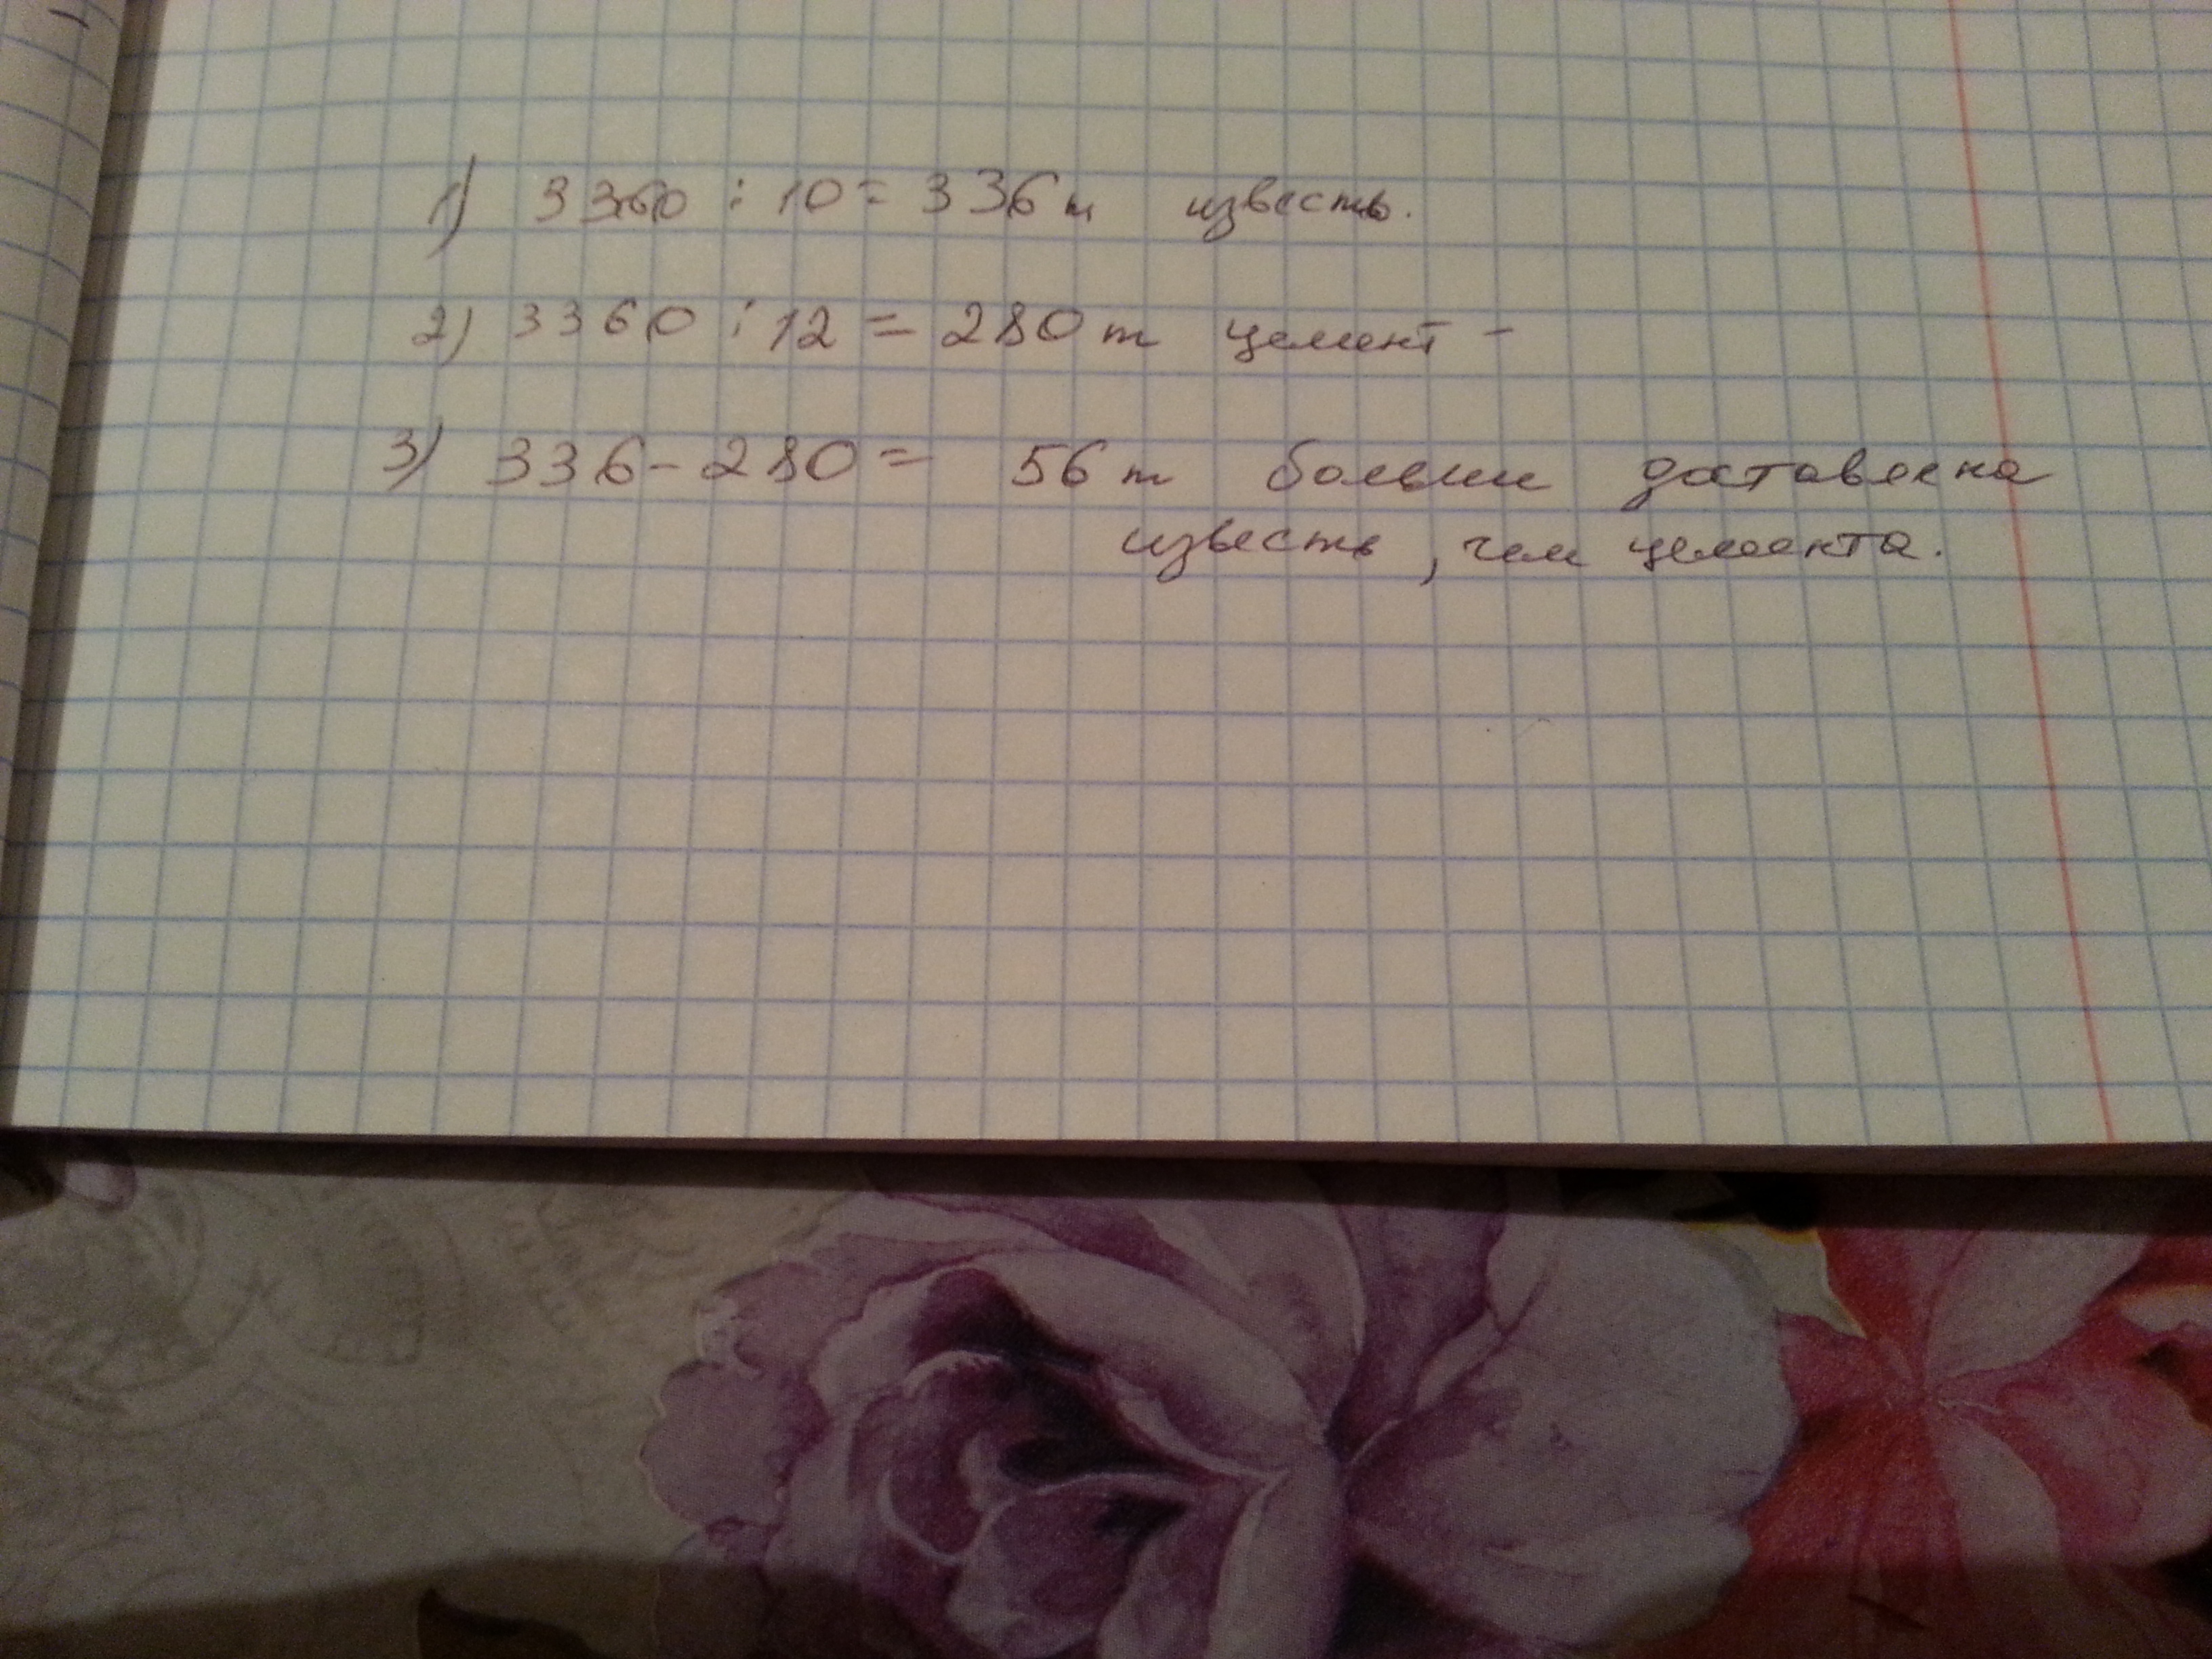 1) 3360 : 10 = 336 т известь.
2) 3360 : 12 = 280 т цемент -
3) 336 - 280 = 56 т больше доставена
известь, чем цемента.